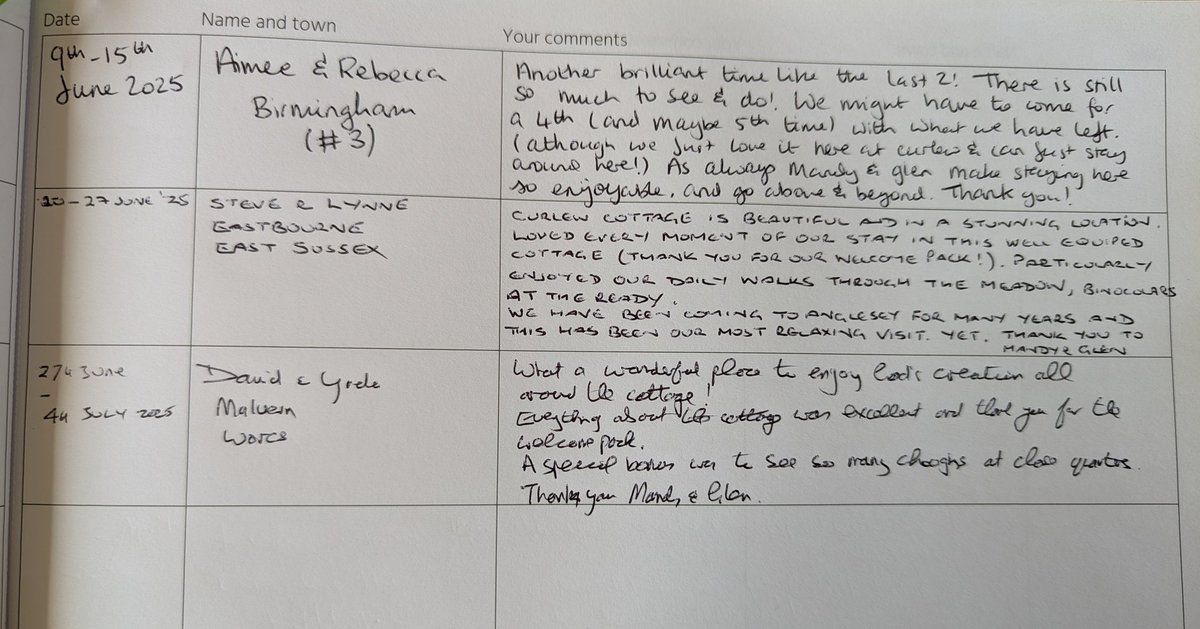 Date Name and town Your comments
9th - 15th
June 2025
Aimee & Rebecca
Birmingham
(#3)
Another brilliant time like the last 2! There is still
so much to see & do! We might have to come for
a 4th (and maybe 5th time) with what we have left.
(although we just love it here at curlew & can just stay
around here!) As always Mandy & glen make staying here
so enjoyable, and go above & beyond. Thank you!
20 - 27 JUNE '25
STEVE & LYNNE
EASTBOURNE
EAST SUSSEX
CURLEW COTTAGE IS BEAUTIFUL AND IN A STUNNING LOCATION.
LOVED EVERY MOMENT OF OUR STAY IN THIS WELL EQUIPED
COTTAGE (THANK YOU FOR OUR WELCOME PACK!). PARTICULARLY
ENJOYED OUR DAILY WALKS THROUGH THE MEADOW, BINOCOLARS
AT THE READY.
WE HAVE BEEN COMING TO ANGLESEY FOR MANY YEARS AND
THIS HAS BEEN OUR MOST RELAXING VISIT. YET. THANK YOU TO
MANDY & GLEN
27th JUNE
-
4th JULY 2025
David &
Malvern
WORCS
What a wonderful place to enjoy God's creation all
around the cottage!
Everything about the cottage was excellent and thank you for the
welcome pack.
A special bonus was to see so many choughs at close quarters.
Thank you Mandy & Glen.